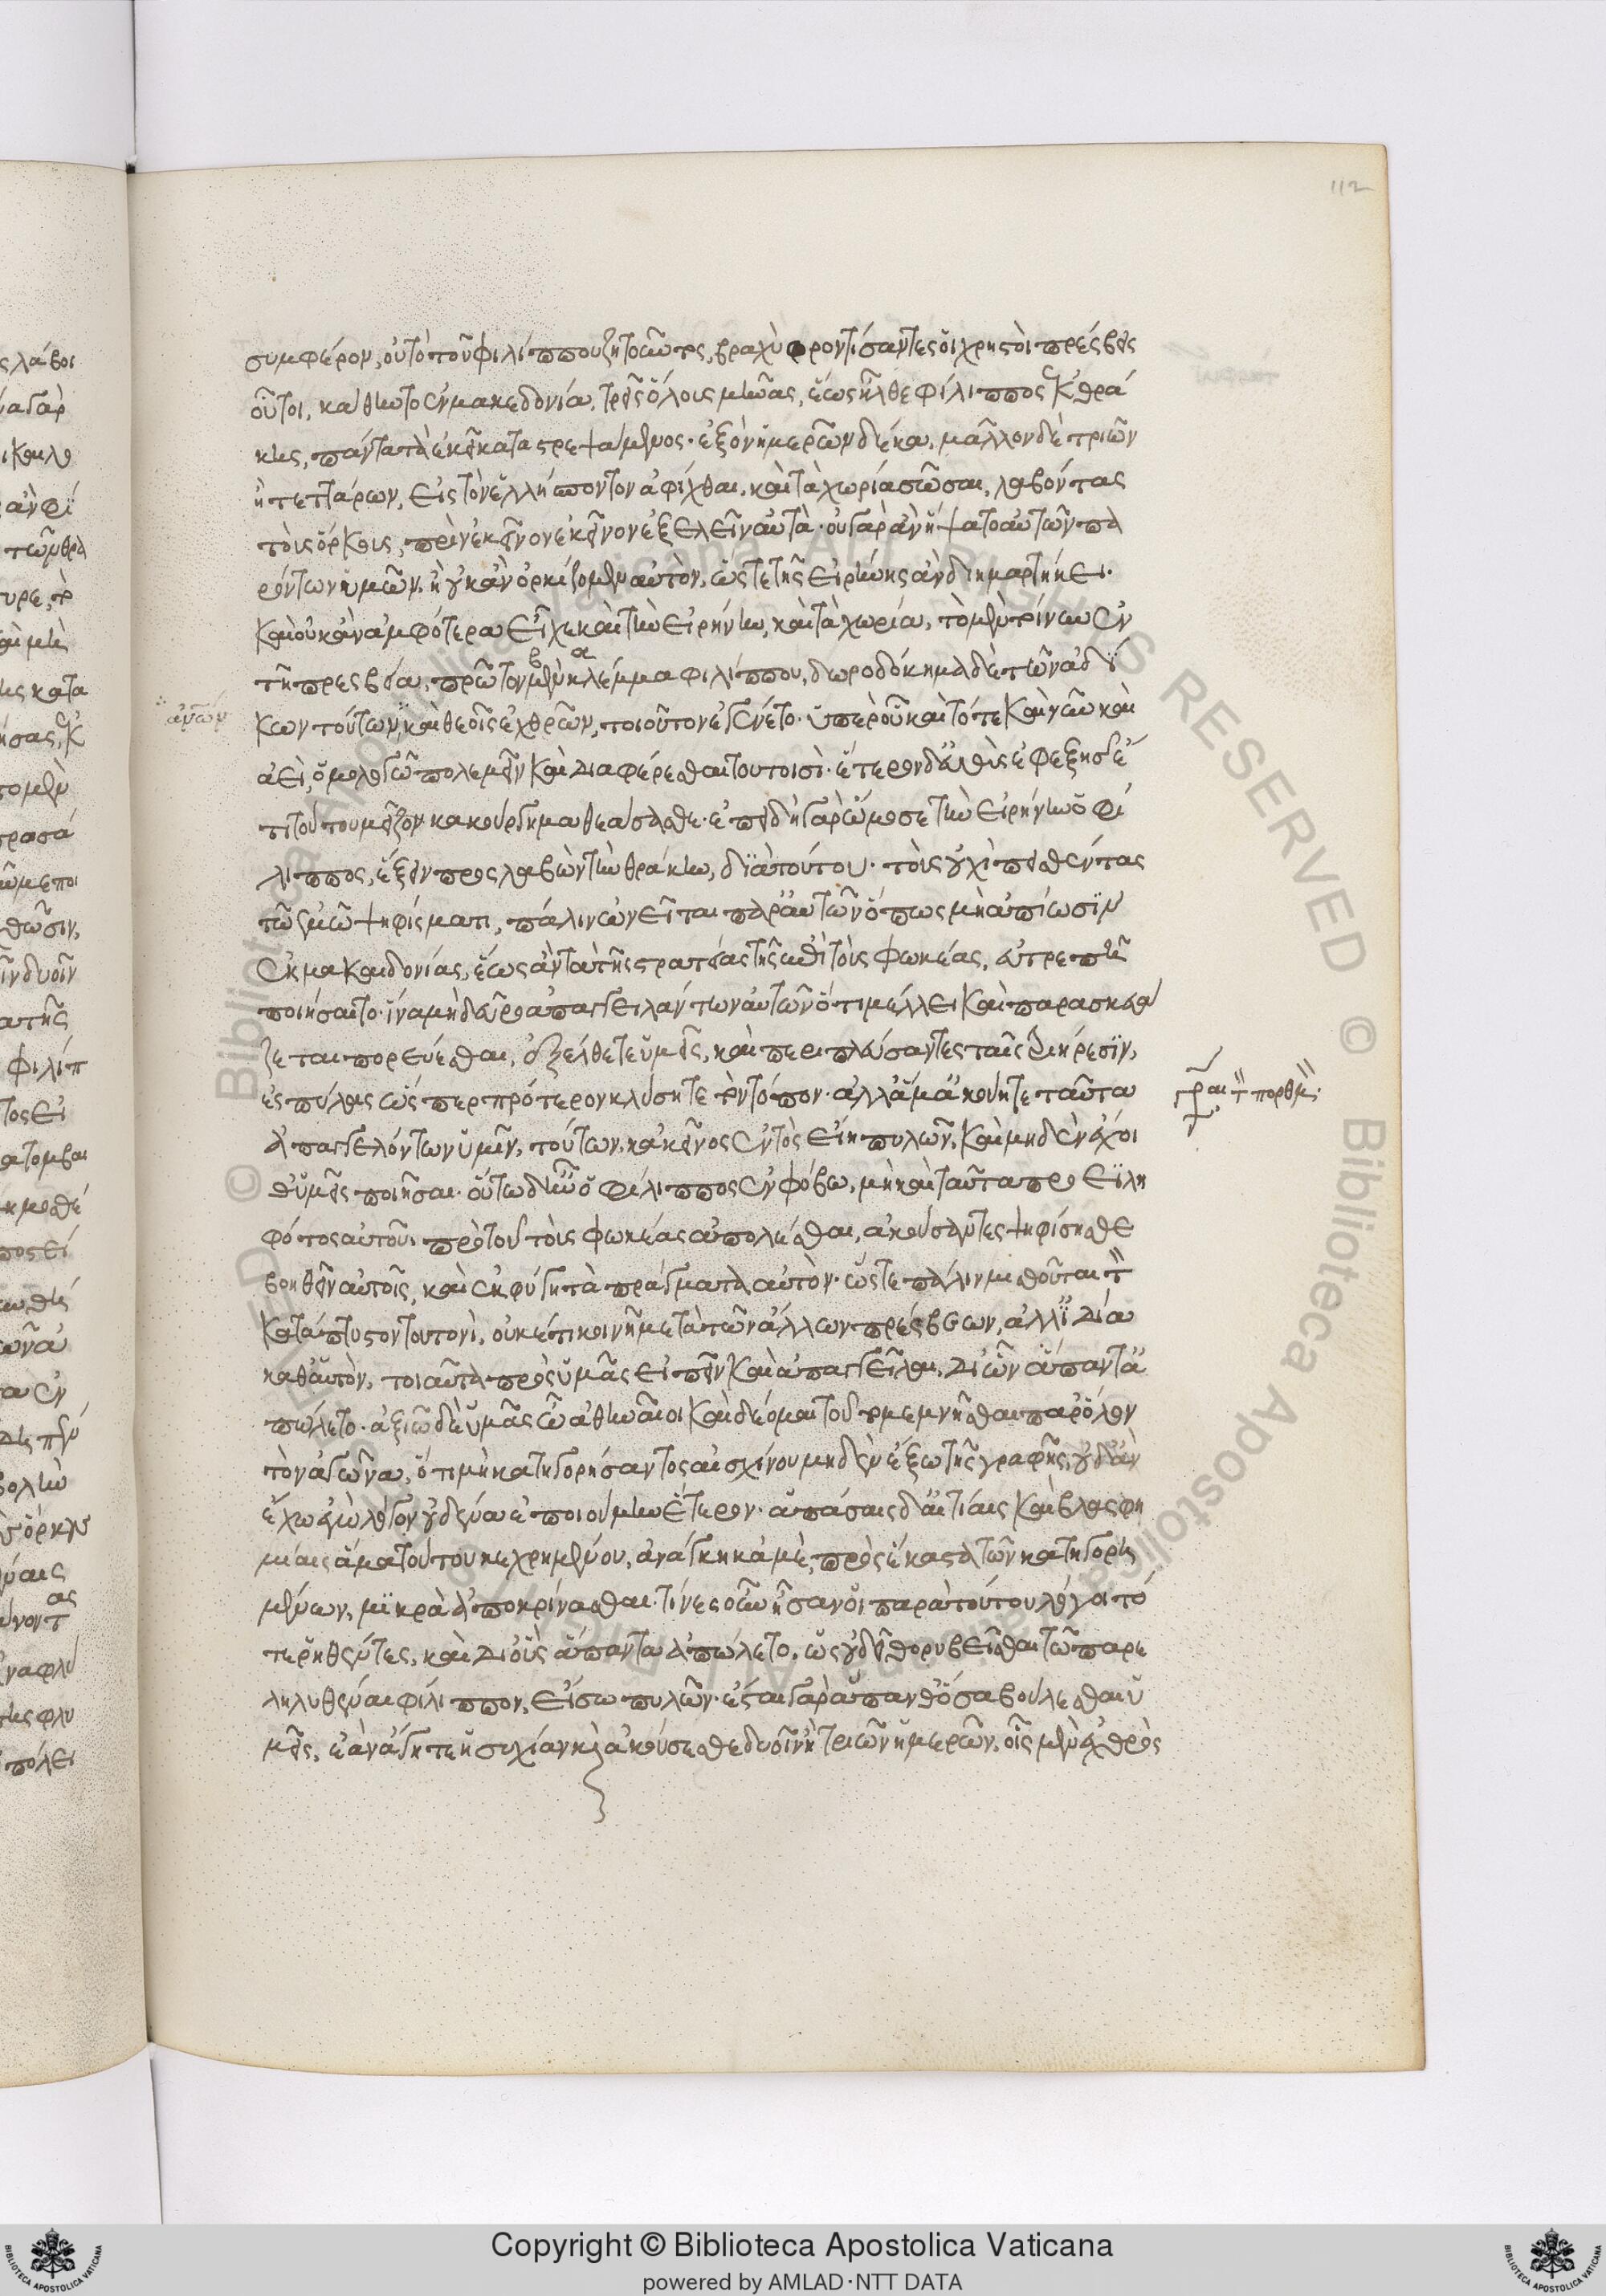 112
συμφέρον, οὐ τὸ τοῦ φιλίππου ζητοῦντες, βραχὺ φροντίσαντες οἱ χρηστοὶ πρέσβεις
οὗτοι, καθῆντο ἐν μακεδονία, τρεῖς ὅλους μῆνας, ἕως ἦλθε φίλιππος ἐκ θρά
κης, πάντα τὰ ἐκεῖ καταστρεψάμενος· ἐξὸν ἡμερῶν δέκα, μᾶλλον δὲ τριῶν
ἢ τεττάρων, εἰς τὸν ἑλλήσποντον ἀφίχθαι, καὶ τὰ χωρία σῶσαι, λαβόντας
τοὺς ὅρκους, πρὶν ἐκεῖνον ἐκεῖνον ἐξελεῖν αὐτὰ· οὐ γὰρ ἂν ἥψατο αὐτῶν πα
ρόντων ἡμῶν. ἢ οὐκ ἂν ὁρκίζομεν αὐτὸν, ὥστε τῆς εἰρήνης ἂν διημαρτήκει·
καὶ οὐκ ἂν ἀμφότερα εἶχε καὶ τὴν εἰρήνην, καὶ τὰ χωρία, τὸ μὲν τοίνυν ἐν
τῆ πρεσβεία, πρῶτον μὲν κλέμμα φιλίππου, δωροδόκημα δὲ τῶν ἀδί
κων τούτων, καὶ θεοῖς ἐχθρῶν, τοιοῦτον ἐγένετο· ὑπὲρ οὗ καὶ τότε καὶ νῦν καὶ
ἀεὶ, ὁμολογῶ πολεμεῖν καὶ διαφέρεσθαι τουτοισὶ· ἕτερον δ' εὐθὺς ἐφεξῆς ἔ
τι τούτου μεῖζον κακούργημα θεάσασθε· ἐπειδὴ γὰρ ὤμοσε τὴν εἰρήνην ὁ φί
λιππος, ἔξειν προσλαβὼν τὴν θράκην, διὰ τούτου· τοὺς οὐχὶ πεισθέντας
τῶ ἐμῶ ψηφίσματι, πάλιν ὠνεῖται παρ' αὐτῶν ὅπως μὴ ἀπίωσιν
ἐκ μακαιδονίας, ἕως ἂν τὰ τῆς στρατείας τῆς ἐπὶ τοὺς φωκέας, εὐτρεπῆ
ποιήσαιτο· ἵνα μὴ δεῦρο ἀπαγγειλάντων αὐτῶν ὅτι μέλλει καὶ παρασκευά
ζεται πορεύεσθαι, ἐξέλθετε ὑμεῖς, καὶ περιπλεύσαντες ταῖς τριήρεσιν,
ἐς πύλας ὥσπερ πρότερον κλύσητε τὸν τόπον· ἀλλ' ἅμα ἀκούητε ταῦτα
ἀπαγγελόντων ὑμῖν, τούτων, κἀκεῖνος ἐντὸς εἴη πυλῶν, καὶ μηδὲν ἔχοι
θ' ὑμεῖς ποιῆσαι· οὕτω δ' ἦν ὁ φίλιππος ἐν φόβω, μὴ καὶ ταῦτα προειλη
φότος αὐτοῦ. πρὸ τοῦ τοὺς φωκέας ἀπολέσθαι, ἀκούσαντες ψηφίσησθε
βοηθεῖν αὐτοῖς, καὶ ἐκφύγη τὰ πράγματα αὐτὸν· ὥστε πάλιν μισθοῦται τ"
κατάπτυστον τουτονὶ, οὐκέτι κοινῆ μετὰ τῶν ἄλλων πρέσβεων, ἀλλ' ἰδία
καθ' αὑτὸν, τοιαῦτα πρὸς ὑμᾶς εἰπεῖν καὶ ἀπαγγεῖλαι, δι' ὧν ἅπαντ' ἀ
πώλετο· ἀξιῶ δὲ ὑμᾶς ὦ ἀθηναῖοι καὶ δέομαι τοῦτο μεμνῆσθαι παρ' ὅλον
τὸν ἀγῶνα, ὅτι μὴ κατηγορήσαντος αἰσχίνου μηδὲν ἔξω τῆς γραφῆς, οὐδ' ἂν
ἐγὼ λόγον οὐδένα ἐποιούμην ἕτερον· ἁπάσαις δ' αἰτίαις καὶ βλασφη
μίαις ἅμα τούτου κεχρημένου, ἀνάγκη κἀμὲ, πρὸς ἕκαστα τῶν κατηγορη
μένων, μικρὰ ἀποκρίνασθαι· τίνες οὖν ἦσαν οἱ παρὰ τούτου λόγοι τό
τε ῥηθέντες, καὶ δι' οὓς ἅπαντα ἀπώλετο, ὡς οὐ δεῖ θορυβεῖσθαι τῶ παρε
ληλυθέναι φίλιππον, εἴσω πυλῶν· ἔσται γὰρ ἅπανθ' ὅσα βούλεσθαι ὑ
μεῖς, ἐὰν ἄγητε ἡσυχίαν καὶ ἀκούσεσθε δυοῖν ἢ τριῶν ἡμερῶν, οἷς μὲν ἐχθρὸς
αὐτῶν
γρ. καὶ τ" πορθμ"
Copyright © Biblioteca Apostolica Vaticana
powered by AMLAD·NTT DATA